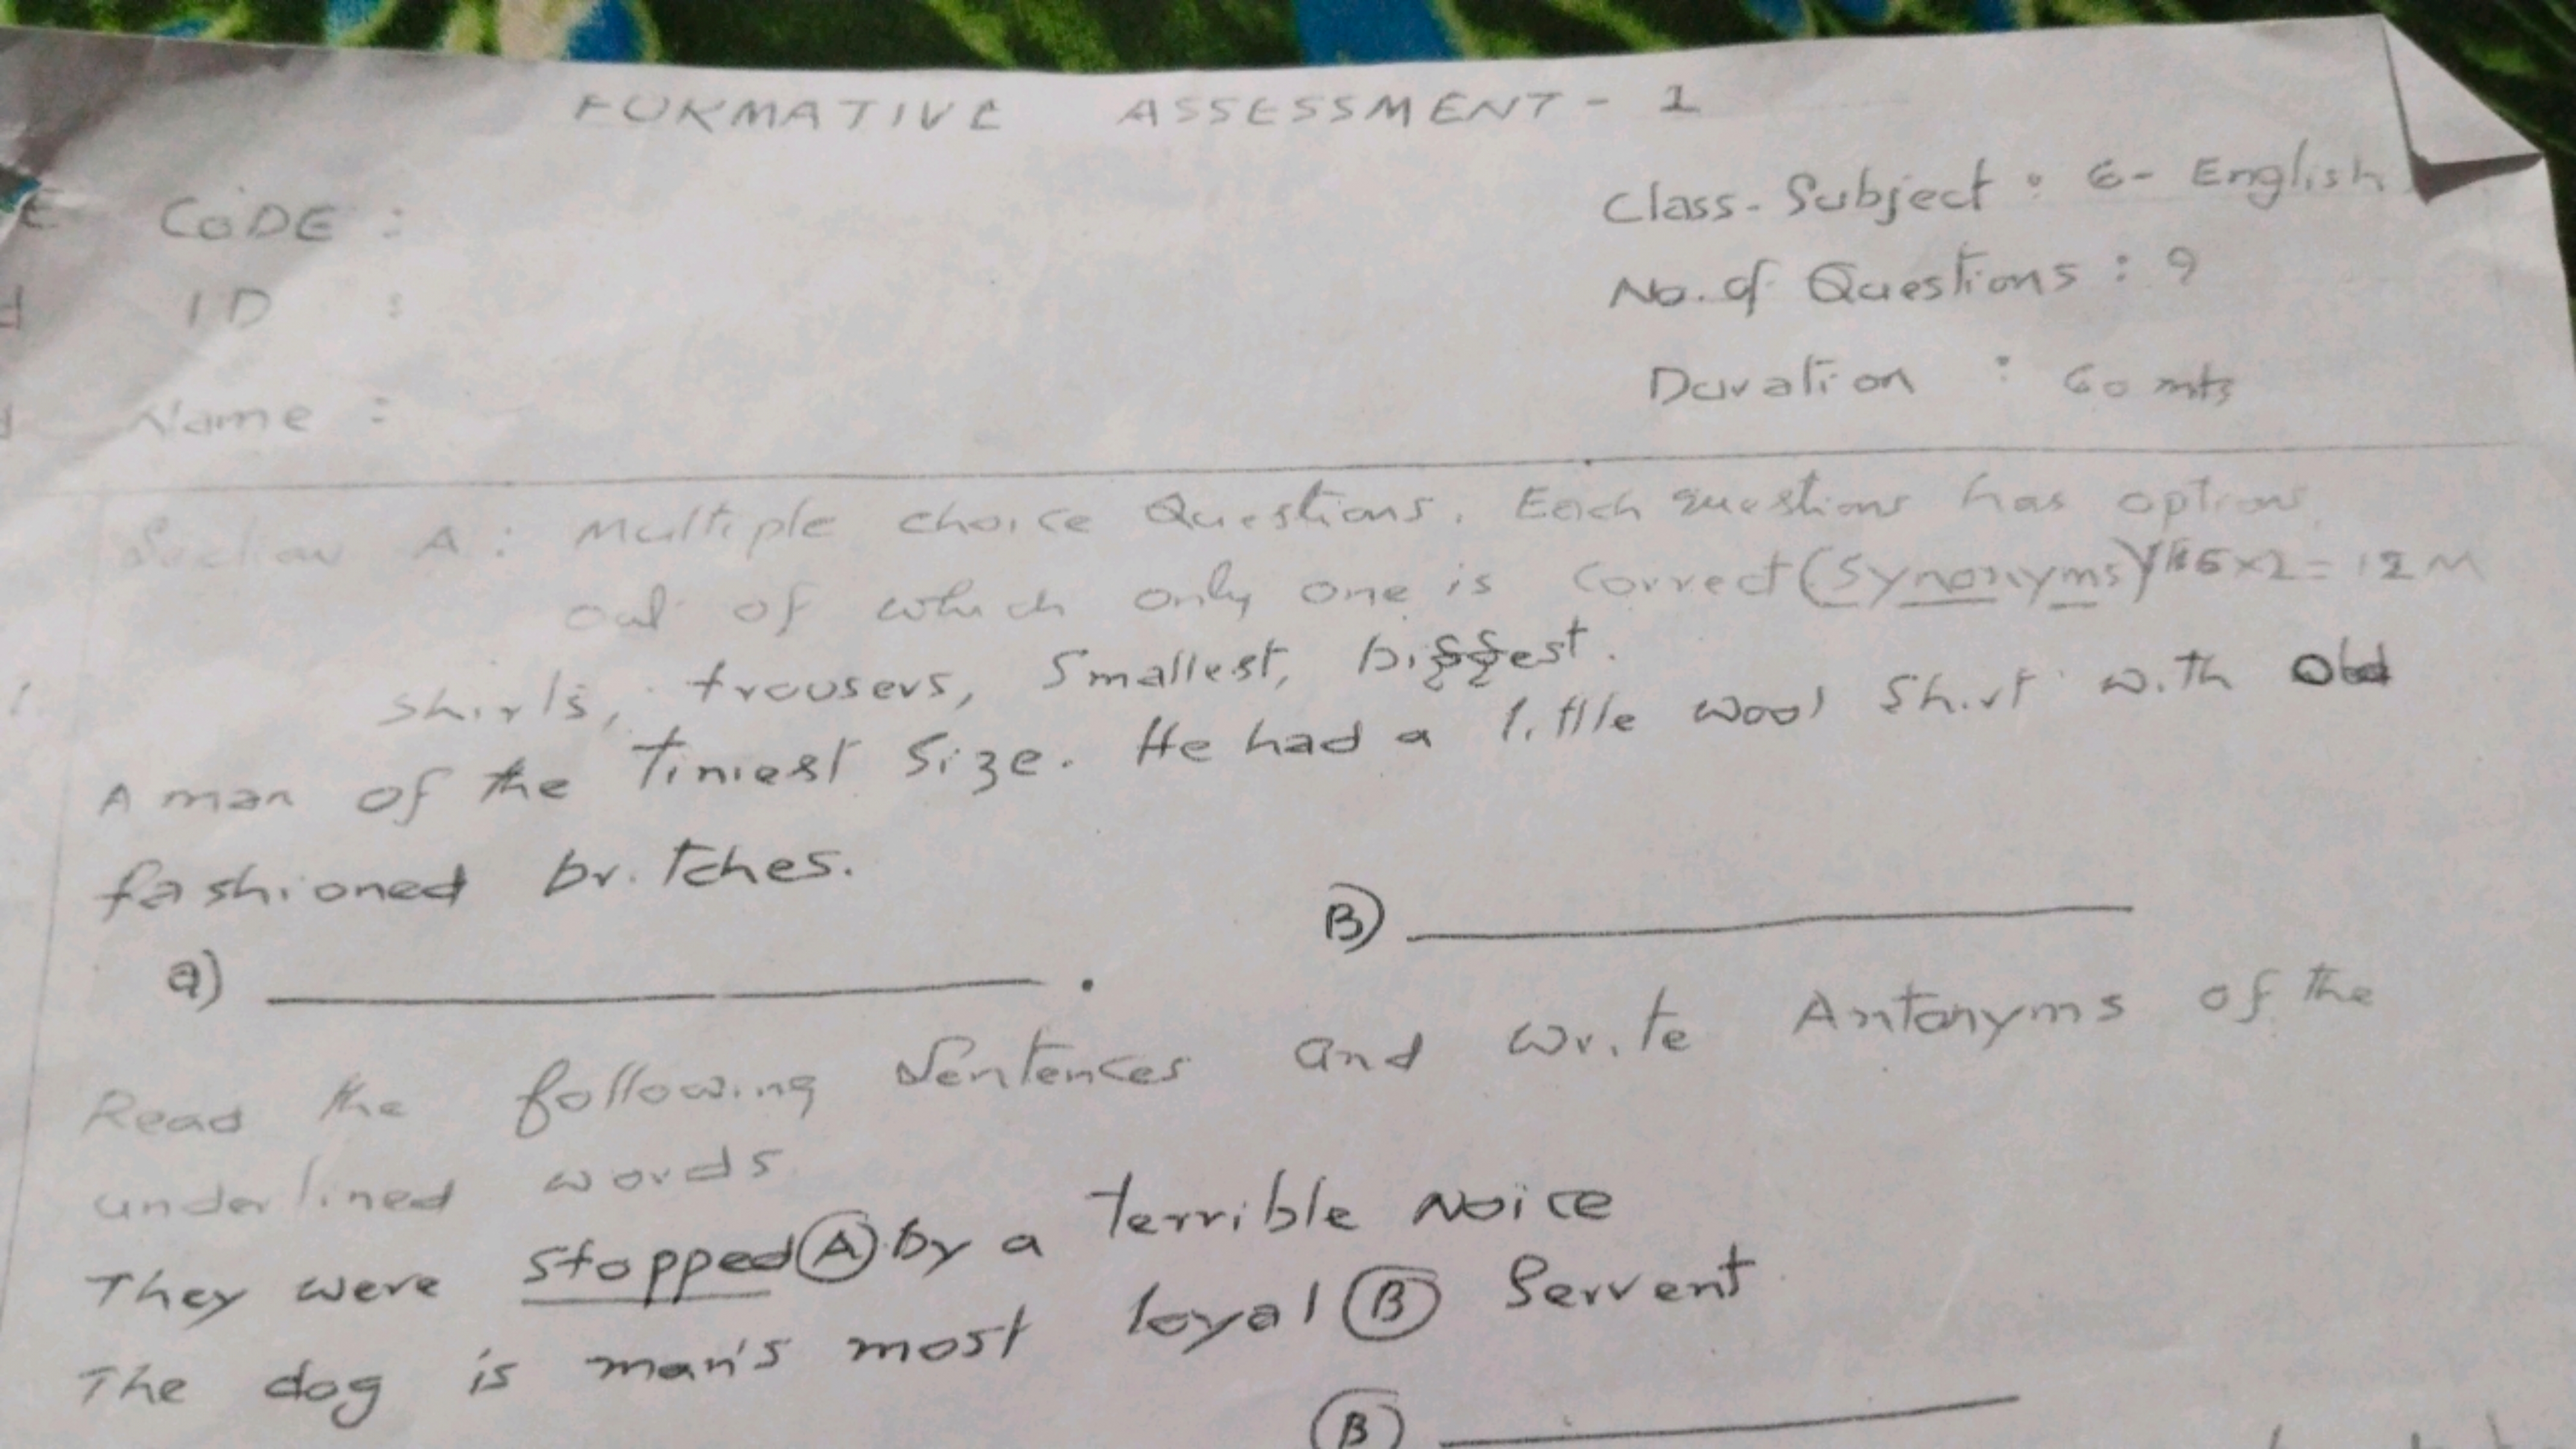 FORMATIVE ASSESSMENT - 1
Class-Subject : 6- English
CODE :
No. of Questions : 9
ID :
Duration : 60 mts
Name :
Section A : Multiple choice Questions. Each questions has options
out of which only one is correct (Synonyms) 6x2=12M
1. Shirts, trousers, Smallest, biggest.
A man of the Tiniest Size. He had a little wool Shirt with old
fashioned britches.
a) ________ . B) ________
Read the following Sentences and write Antonyms of the
underlined words
They were stopped (A) by a terrible Noice
The dog is man's most loyal (B) Servent
(B) ________